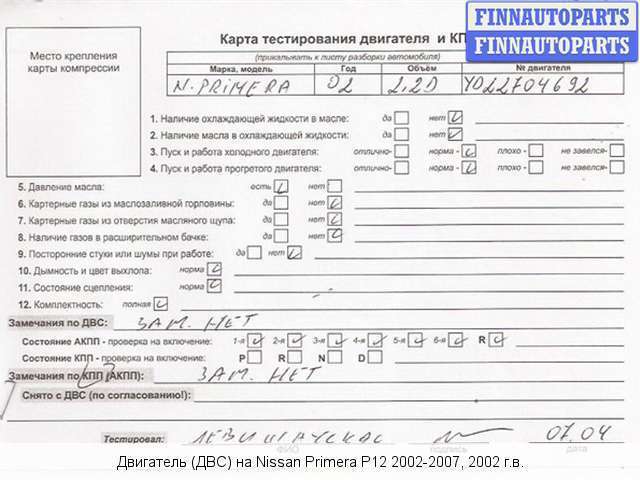 FINNAUTOPARTS
FINNAUTOPARTS
Карта тестирования двигателя и КП
(прикалывать к листу разборки автомобиля)
Место крепления
карты компрессии
Марка, модель Год Объём № двигателя
N. PRIMERA 02 2,2D YD22704692
1. Наличие охлаждающей жидкости в масле: да нет
2. Наличие масла в охлаждающей жидкости: да нет
3. Пуск и работа холодного двигателя: отлично- норма - плохо - не завелся-
4. Пуск и работа прогретого двигателя: отлично- норма - плохо - не завелся-
5. Давление масла: есть нет
6. Картерные газы из маслозаливной горловины: да нет
7. Картерные газы из отверстия масляного щупа: да нет
8. Наличие газов в расширительном бачке: да нет
9. Посторонние стуки или шумы при работе: да нет
10. Дымность и цвет выхлопа: норма
11. Состояние сцепления: норма
12. Комплектность: полная
Замечания по ДВС: ЗАМ. НЕТ
Состояние АКПП - проверка на включение: 1-я 2-я 3-я 4-я 5-я 6-я R
Состояние КПП - проверка на включение: P R N D
Замечания по КПП (АКПП): ЗАМ. НЕТ
Снято с ДВС (по согласованию!):
Тестировал: 07.04
ФИО подпись дата
Двигатель (ДВС) на Nissan Primera P12 2002-2007, 2002 г.в.